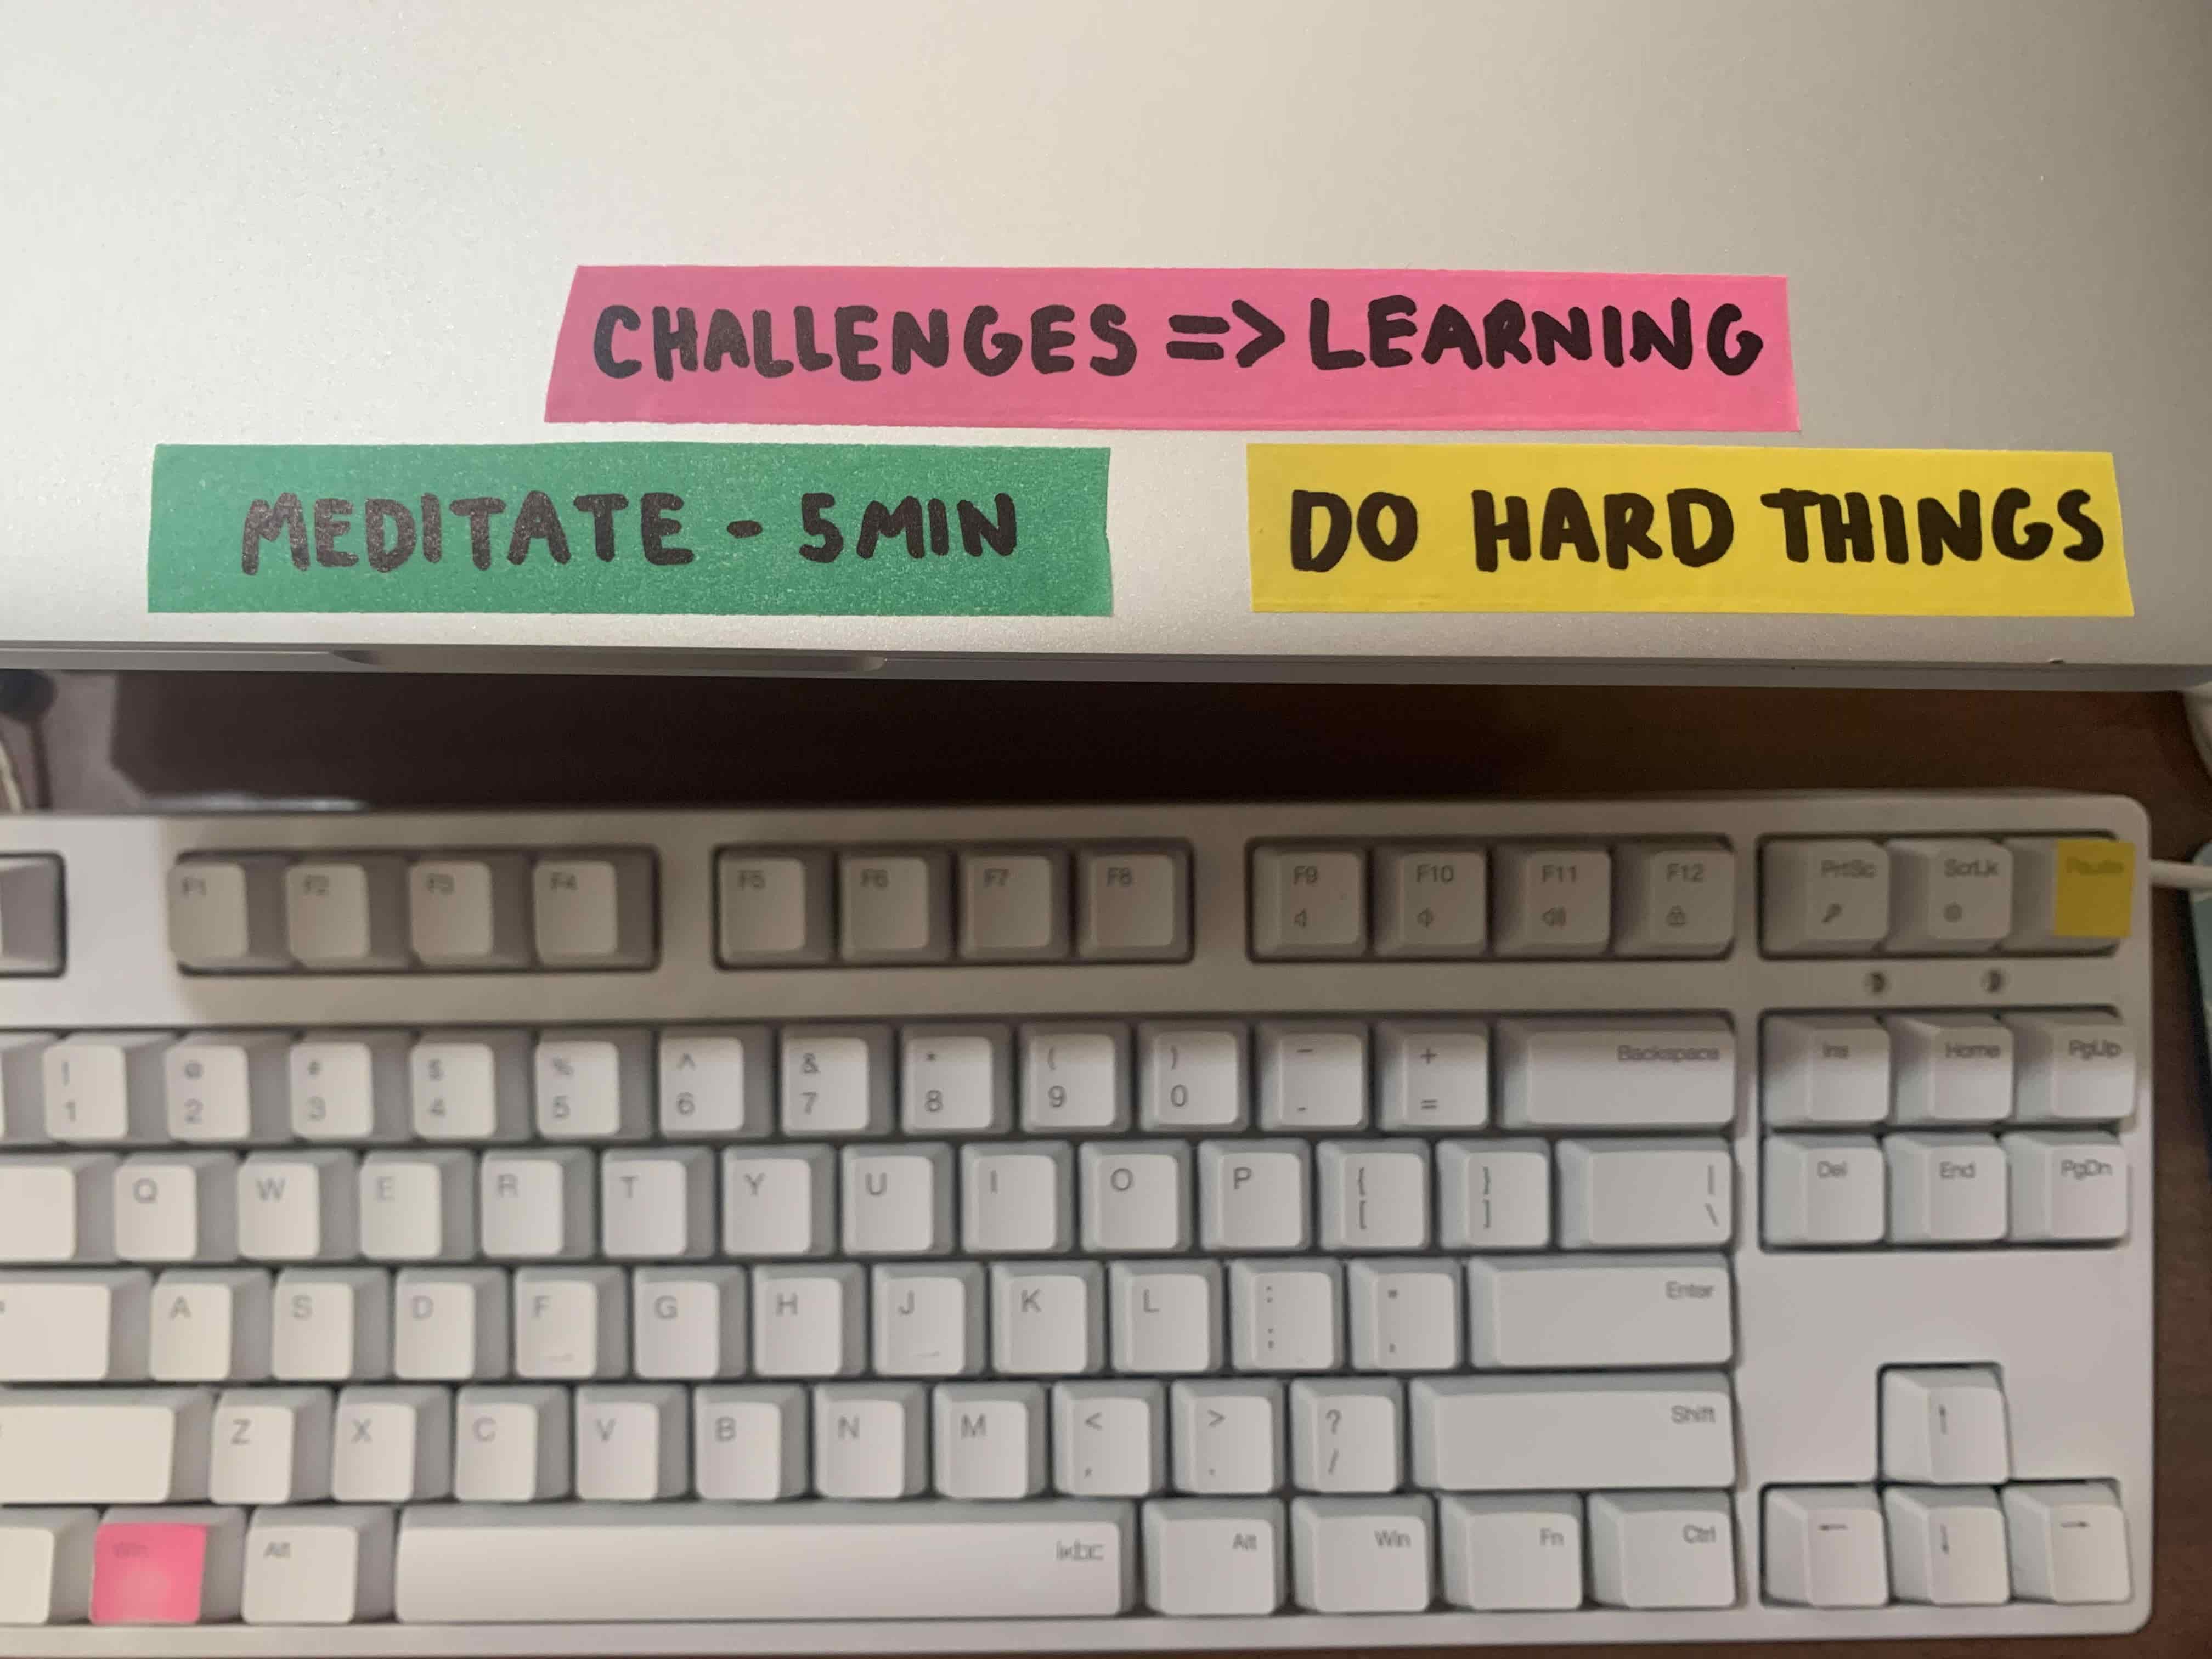 CHALLENGES => LEARNING
MEDITATE - 5MIN
DO HARD THINGS
F1 F2 F3 F4 F5 F6 F7 F8 F9 F10 F11 F12 PrtSc ScrLk Pause
! @ # $ % ^ & * ( ) _ + Backspace Ins Home PgUp
1 2 3 4 5 6 7 8 9 0 - =
Q W E R T Y U I O P { } | Del End PgDn
[ ] \
A S D F G H J K L : " Enter
; '
Z X C V B N M < > ? Shift ↑
, . /
Win Alt ikbc Alt Win Fn Ctrl ← ↓ →